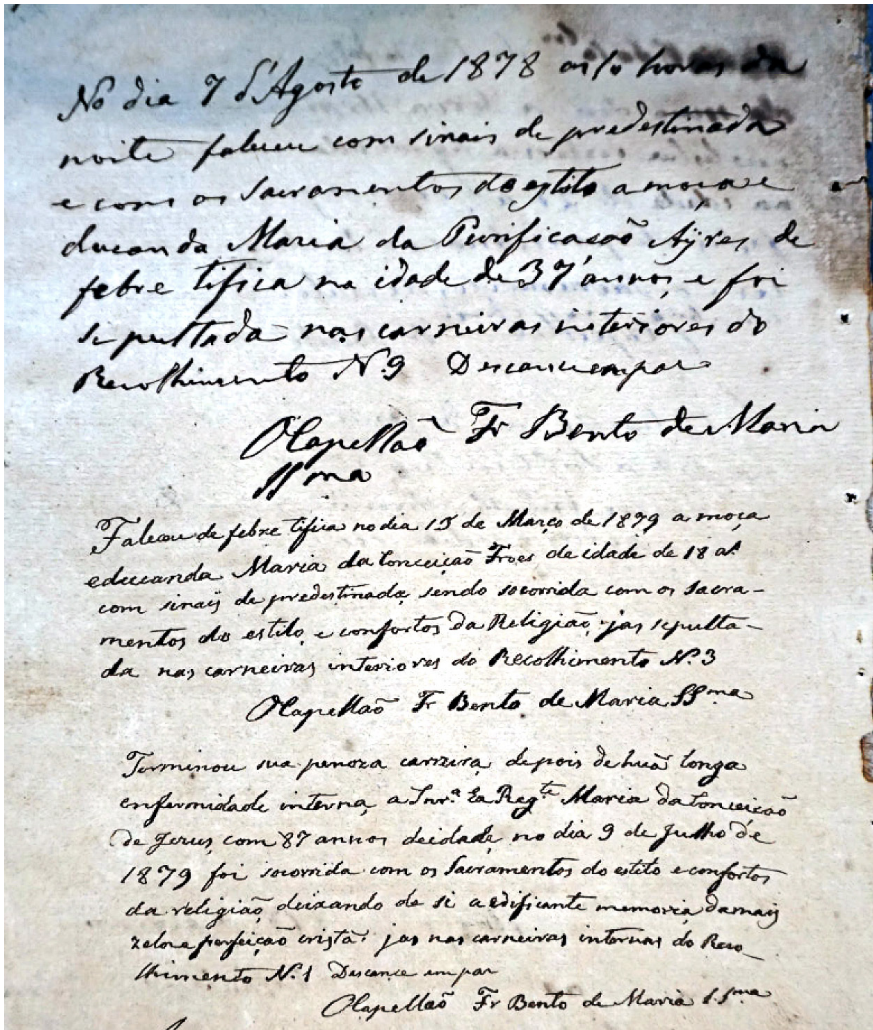 No dia 7 d'Agosto de 1878 as 10 horas da
noite faleceu com sinais de predestinada
e com os Sacramentos do estilo a moça e
ducanda Maria da Purificasaõ Ayres de
febre tifica na idade de 37 annos, e foi
sepultada nas carneiras interiores do
Recolhimento N.9 Descance em pas
O Capellaõ Fr Bento de Maria
SSma
Faleceu de febre tifica no dia 15 de Março de 1879 a moça
educanda Maria da Conceição Froes de idade de 18 as
com sinais de predestinada, sendo socorrida com os Sacra-
mentos do estilo, e confortos da Religião, jas sepulta-
da nas carneiras interiores do Recolhimento N.3
O Capellaõ Fr Bento de Maria SSma
Terminou sua penoza carreira, depois de huã longa
enfermidade interna, a Snr.a Ex Reg.te Maria da Conceição
de Jezus, com 87 annos de idade, no dia 9 de Julho de
1879 foi socorrida com os Sacramentos do estilo e confortos
da religião, deixando de si a edificante memoria, da mais
zeloza perfeição cristã: jas nas carneiras internas do Reco_
lhimento N.1 Descance em pas
O Capellaõ Fr Bento de Maria SSma